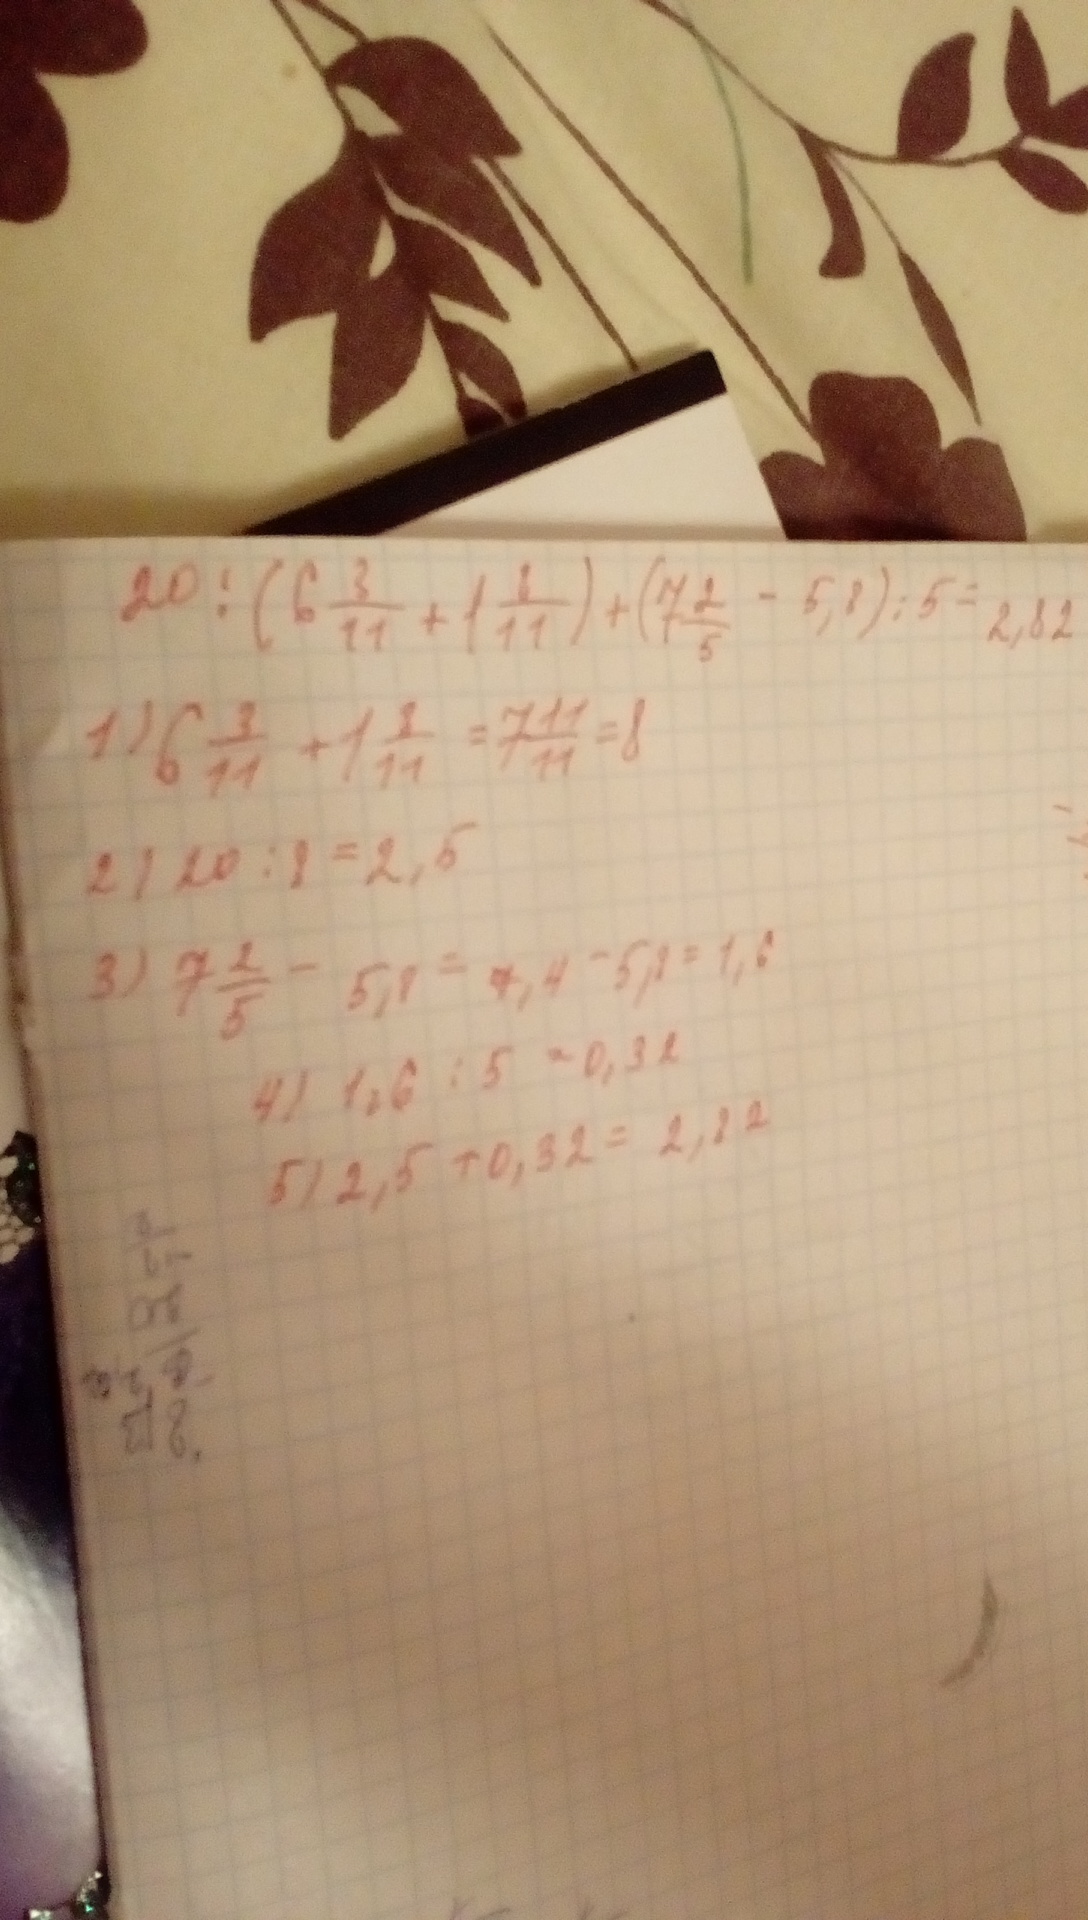 20 : (6 3/11 + 1 8/11) + (7 2/5 - 5,8) : 5 = 2,82
1) 6 3/11 + 1 8/11 = 7 11/11 = 8
2) 20 : 8 = 2,5
3) 7 2/5 - 5,8 = 7,4 - 5,8 = 1,6
4) 1,6 : 5 = 0,32
5) 2,5 + 0,32 = 2,82